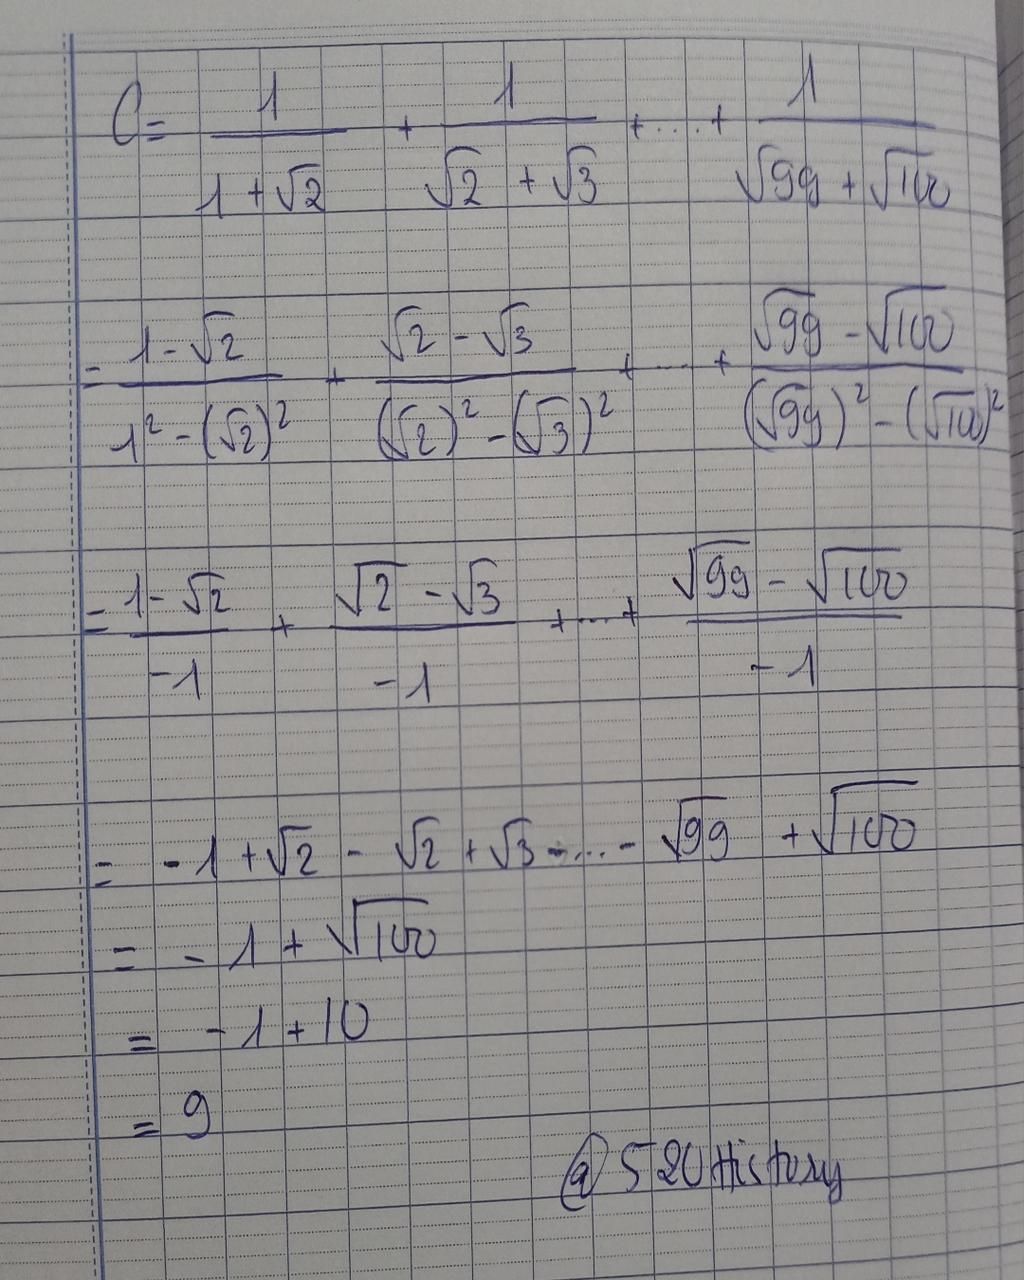 C = 1/(1 + √2) + 1/(√2 + √3) + .... + 1/(√99 + √100)
= (1 - √2)/(1² - (√2)²) + (√2 - √3)/((√2)² - (√3)²) + .... + (√99 - √100)/((√99)² - (√100)²)
= (1 - √2)/(-1) + (√2 - √3)/(-1) + .... + (√99 - √100)/(-1)
= - 1 + √2 - √2 + √3 - .... - √99 + √100
= - 1 + √100
= - 1 + 10
= 9
@520History